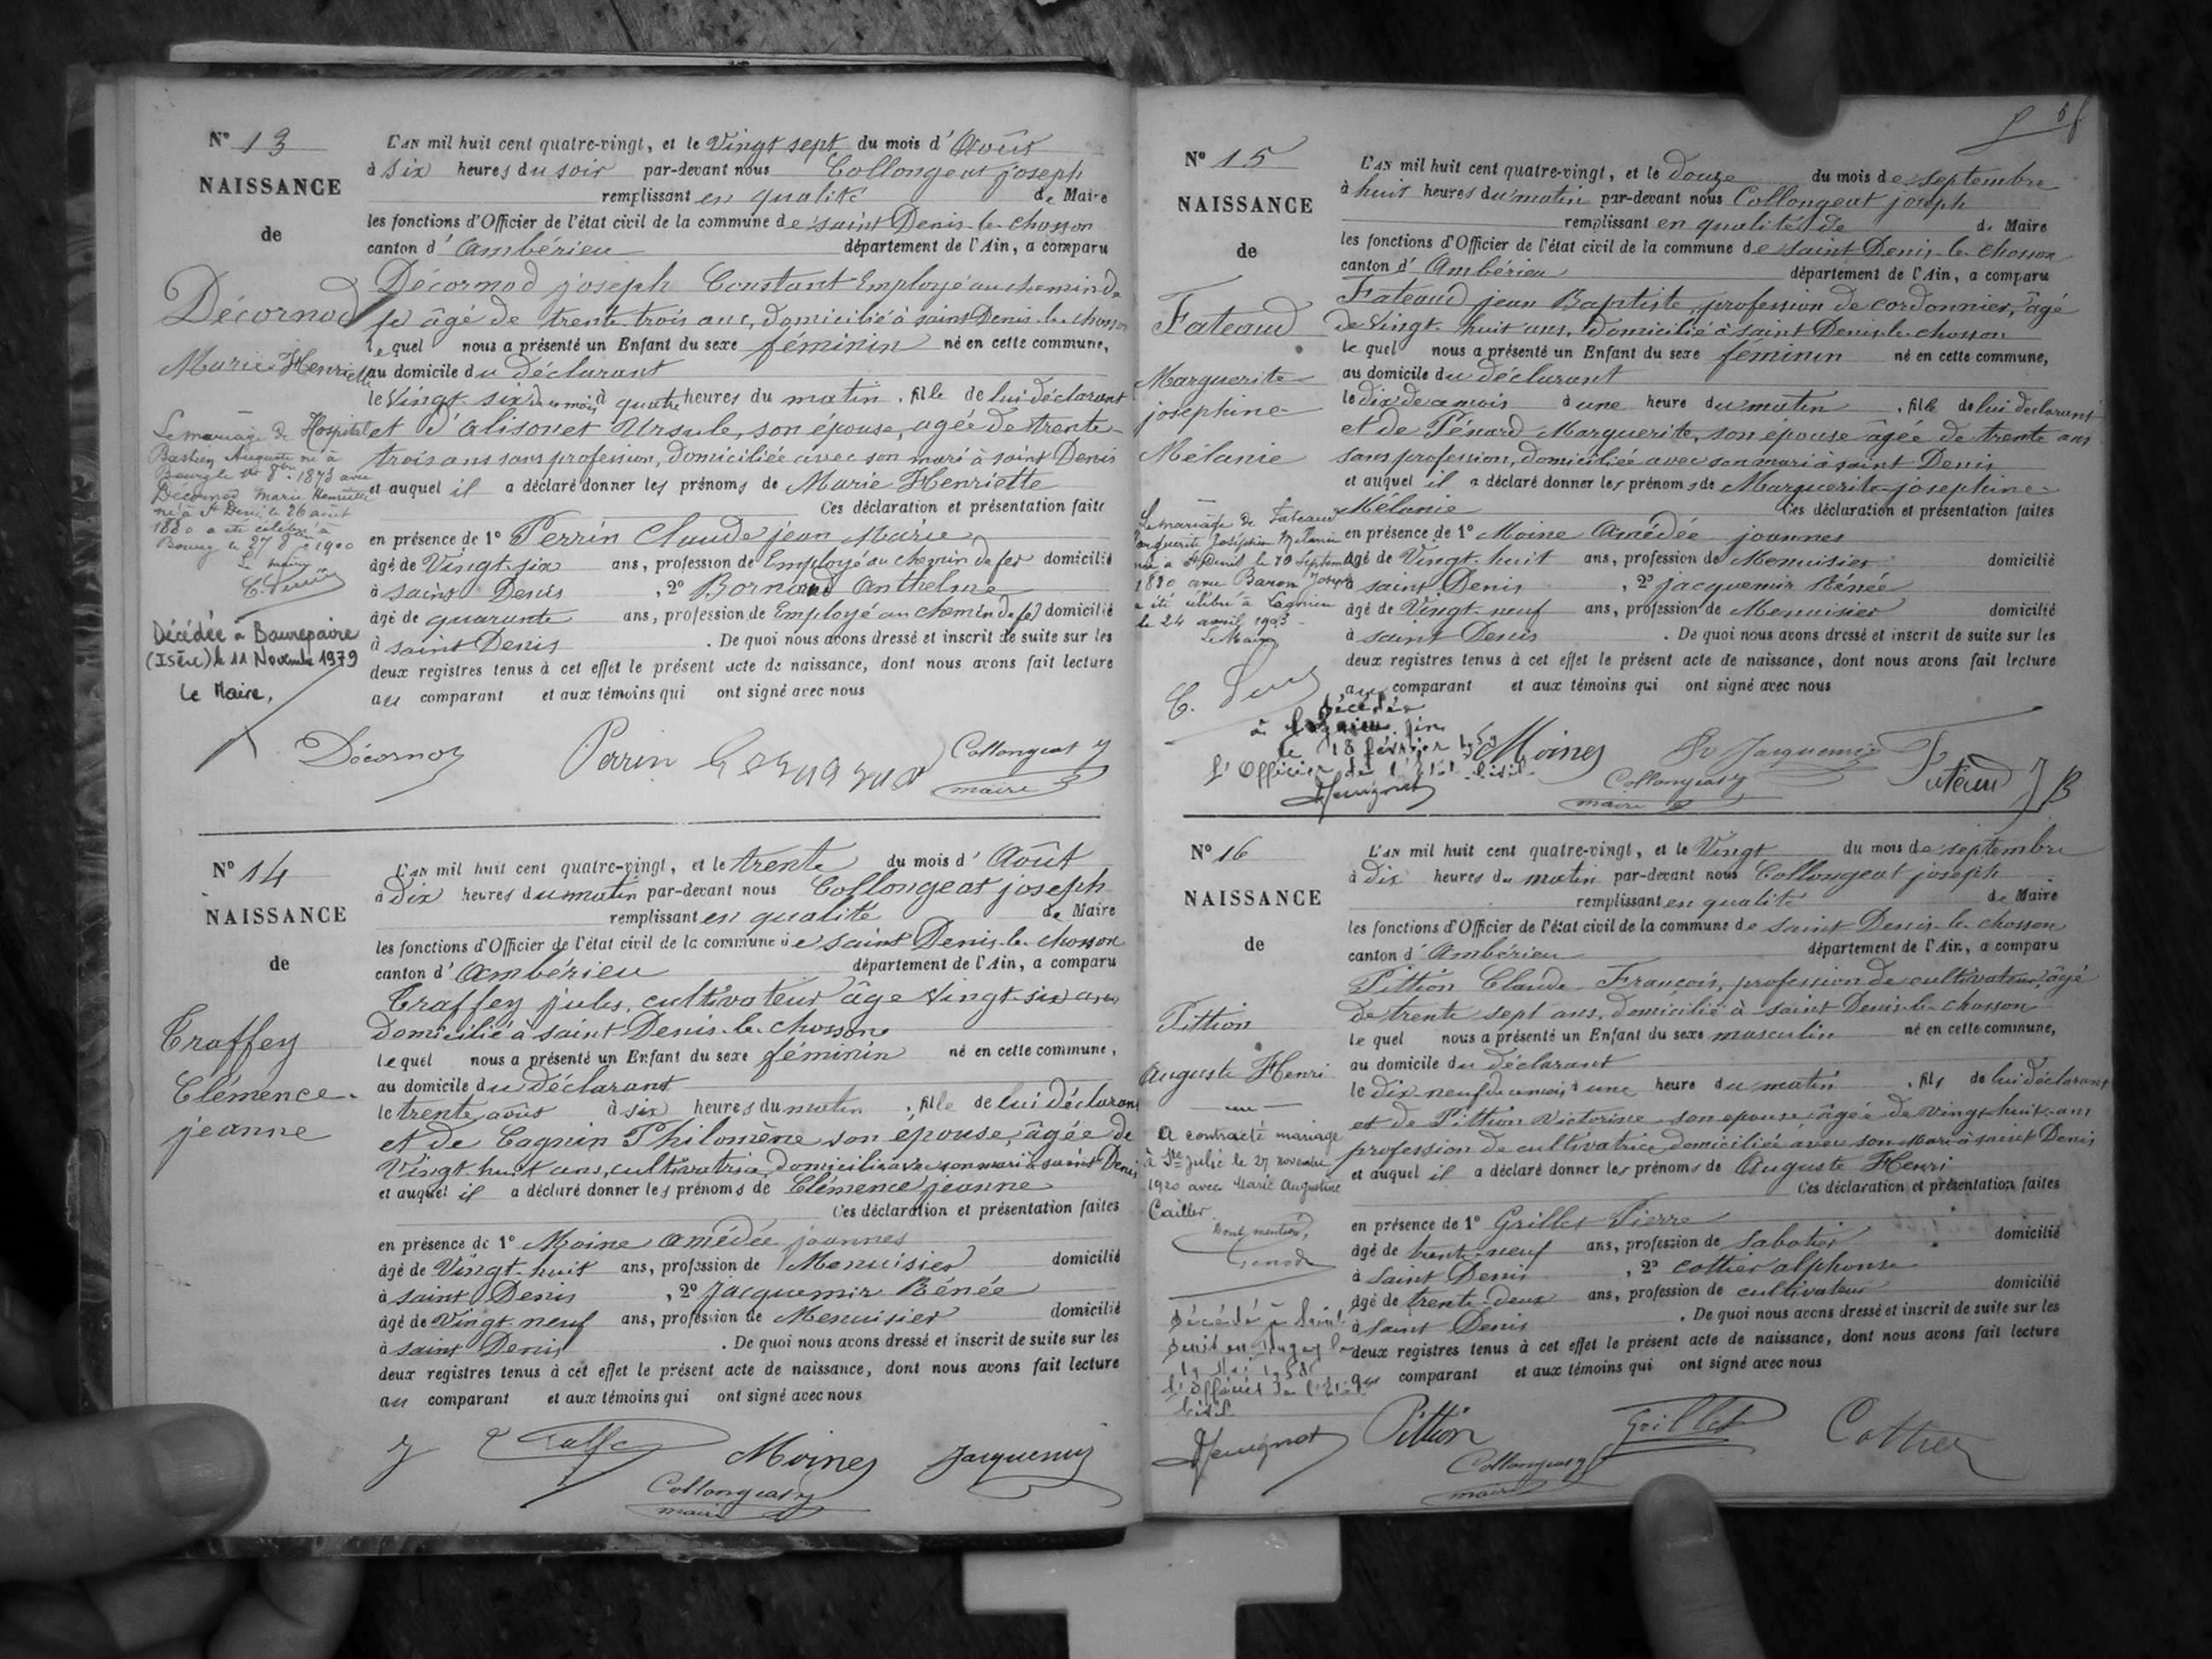 N° 13
NAISSANCE
de
Décornod
Marie Henriette
Le mariage de Hospital
Bastien Auguste né à
Bourg le 8bre 1873 avec
Décornod Marie Henriette
née à St Denis le 26 août
1880 a été célébré à
Bourg le 27 1900
Le Maire
Décédée à Beaurepaire
(Isère) le 11 Novembre 1979
Le Maire,
L'AN mil huit cent quatre-vingt, et le Vingt sept du mois d'Août
à six heures du soir par-devant nous Collongeat joseph
remplissant en qualité de Maire
les fonctions d'Officier de l'état civil de la commune de saint Denis-le-chosson
canton d'Ambérieu département de l'Ain, a comparu
Décornod joseph Constant Employé au chemin de
fe âgé de trente trois ans, domicilié à saint Denis-le-chosson
lequel nous a présenté un Enfant du sexe féminin né en cette commune,
au domicile du déclarant
le Vingt-six du mois à quatre heures du matin, fille de lui déclarant
et d'alisonet Ursule, son épouse, agée de trente
trois ans sans profession, domiciliée avec son mari à saint Denis
et auquel il a déclaré donner les prénoms de Marie Henriette
Ces déclaration et présentation faite
en présence de 1° Perrin Claude jean Marie
âgé de Vingt-six ans, profession de Employé au chemin de fer domicilié
à saint Denis, 2° Bornard Anthelme
âgé de quarante ans, profession de Employé au chemin de fer domicilié
à saint Denis. De quoi nous avons dressé et inscrit de suite sur les
deux registres tenus à cet effet le présent acte de naissance, dont nous avons fait lecture
au comparant et aux témoins qui ont signé avec nous
Décornod Perrin Collongeat
maire
N° 14
NAISSANCE
de
Traffey
Clémence
jeanne
L'AN mil huit cent quatre-vingt, et le trente du mois d'Août
à Dix heures du matin par-devant nous Collongeat joseph
remplissant en qualité de Maire
les fonctions d'Officier de l'état civil de la commune de saint Denis-le-chosson
canton d'Ambérieu département de l'Ain, a comparu
Traffey jules, cultivateur âge Vingt-six ans
domicilié à saint Denis-le-chosson
lequel nous a présenté un Enfant du sexe féminin né en cette commune,
au domicile du déclarant
le trente août à six heures du matin, fille de lui déclarant
et de Cagnin Philomène son épouse, âgée de
Vingt huit ans, cultivatrice domiciliée avec son mari à saint Denis
et auquel il a déclaré donner les prénoms de Clémence jeanne
Ces déclaration et présentation faites
en présence de 1° Moine amédée joannes
âgé de Vingt-huit ans, profession de Menuisier domicilié
à saint Denis, 2° jacquemir Rénée
âgé de Vingt-neuf ans, profession de Menuisier domicilié
à saint Denis. De quoi nous avons dressé et inscrit de suite sur les
deux registres tenus à cet effet le présent acte de naissance, dont nous avons fait lecture
au comparant et aux témoins qui ont signé avec nous
Moines Jacquemir
Collongeat
maire
N° 15
NAISSANCE
de
Fateaud
Marguerite
josephine
Mélanie
Le mariage de Fateaud
Marguerite Joséphine Mélanie
née à St Denis le 10 Septembre
1880 avec Baron Joseph
a été célébré à Lagnieu
le 24 avril 1903
Le Maire
Décédée
à Lagnieu Ain
le 18 février 1959
L'Officier de l'Etat Civil
L'AN mil huit cent quatre-vingt, et le douze du mois de septembre
à huit heures du matin par-devant nous Collongeat joseph
remplissant en qualité de de Maire
les fonctions d'Officier de l'état civil de la commune de saint-Denis-le-chosson
canton d'Ambérieu département de l'Ain, a comparu
Fateaud jean Baptiste, profession de cordonnier, âgé
de Vingt-huit ans, domicilié à saint Denis-le-chosson
lequel nous a présenté un Enfant du sexe féminin né en cette commune,
au domicile du déclarant
le dix de ce mois à une heure du matin, fille de lui déclarant
et de Pénard Marguerite, son épouse âgée de trente ans
sans profession, domiciliée avec son mari à saint-Denis
et auquel il a déclaré donner les prénoms de Marguerite-josephine-
Mélanie Ces déclaration et présentation faites
en présence de 1° Moine Amédée joannes
âgé de Vingt-huit ans, profession de Menuisier domicilié
à saint Denis, 2° jacquemir Rénée
âgé de Vingt-neuf ans, profession de Menuisier domicilié
à saint Denis. De quoi nous avons dressé et inscrit de suite sur les
deux registres tenus à cet effet le présent acte de naissance, dont nous avons fait lecture
au comparant et aux témoins qui ont signé avec nous
Moines Jacquemir Fateaud
Collongeat
maire
N° 16
NAISSANCE
de
Pittion
Auguste Henri
A contracté mariage
à Ste Julie le 27 novembre
1920 avec Marie Augustine
Cailler
Dont mention,
Décédé à Saint
Denis en Bugey le
19 Mai 1958
L'Officier de l'Etat
Civil
L'AN mil huit cent quatre-vingt, et le Vingt du mois de septembre
à Dix heures du matin par-devant nous Collongeat joseph
remplissant en qualité de Maire
les fonctions d'Officier de l'état civil de la commune de saint Denis-le-chosson
canton d'Ambérieu département de l'Ain, a comparu
Pittion Claude-François, profession de cultivateur, âgé
de trente sept ans, domicilié à saint Denis-le-chosson
lequel nous a présenté un Enfant du sexe masculin né en cette commune,
au domicile du déclarant
le dix-neuf du mois à une heure du matin, fils de lui déclarant
et de Pittion Victorine son epouse âgée de vingt-huit-ans
profession de cultivatrice domiciliée avec son Mari à saint Denis
et auquel il a déclaré donner les prénoms de Auguste Henri
Ces déclaration et présentation faites
en présence de 1° Grillet Pierre
âgé de trente-neuf ans, profession de Sabotier domicilié
à Saint Denis, 2° Cottier alphonse
âgé de trente-deux ans, profession de cultivateur domicilié
à saint Denis. De quoi nous avons dressé et inscrit de suite sur les
deux registres tenus à cet effet le présent acte de naissance, dont nous avons fait lecture
au comparant et aux témoins qui ont signé avec nous
Pittion Grillet Cottier
Collongeat
maire